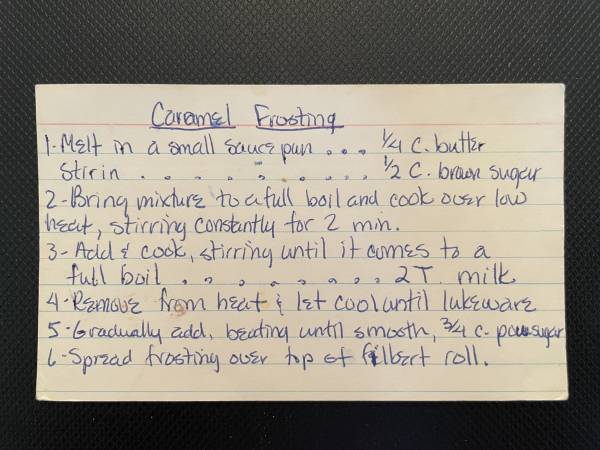 Caramel Frosting
1-Melt in a small saucepan . . . 1/4 C. butter
Stir in . . . . . . . . . 1/2 C. brown sugar
2-Bring mixture to a full boil and cook over low
heat, stirring constantly for 2 min.
3-Add & cook, stirring until it comes to a
full boil . . . . . . . . . 2 T. milk
4-Remove from heat & let cool until lukeware
5-Gradually add, beating until smooth, 3/4 c. pow sugar
6-Spread frosting over top of filbert roll.